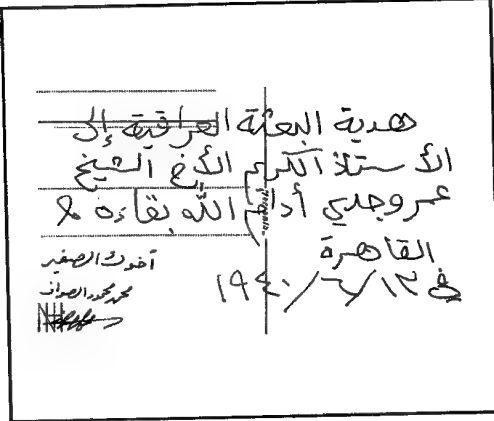 هدية البعثة العراقية إلى
الأستاذ الكريم الأخ الشيخ
عمر وجدي أدام الله بقاءه
القاهرة
في ١٢/٦/١٩٤٠
أخوك الصغير
محمد محمود الصواف